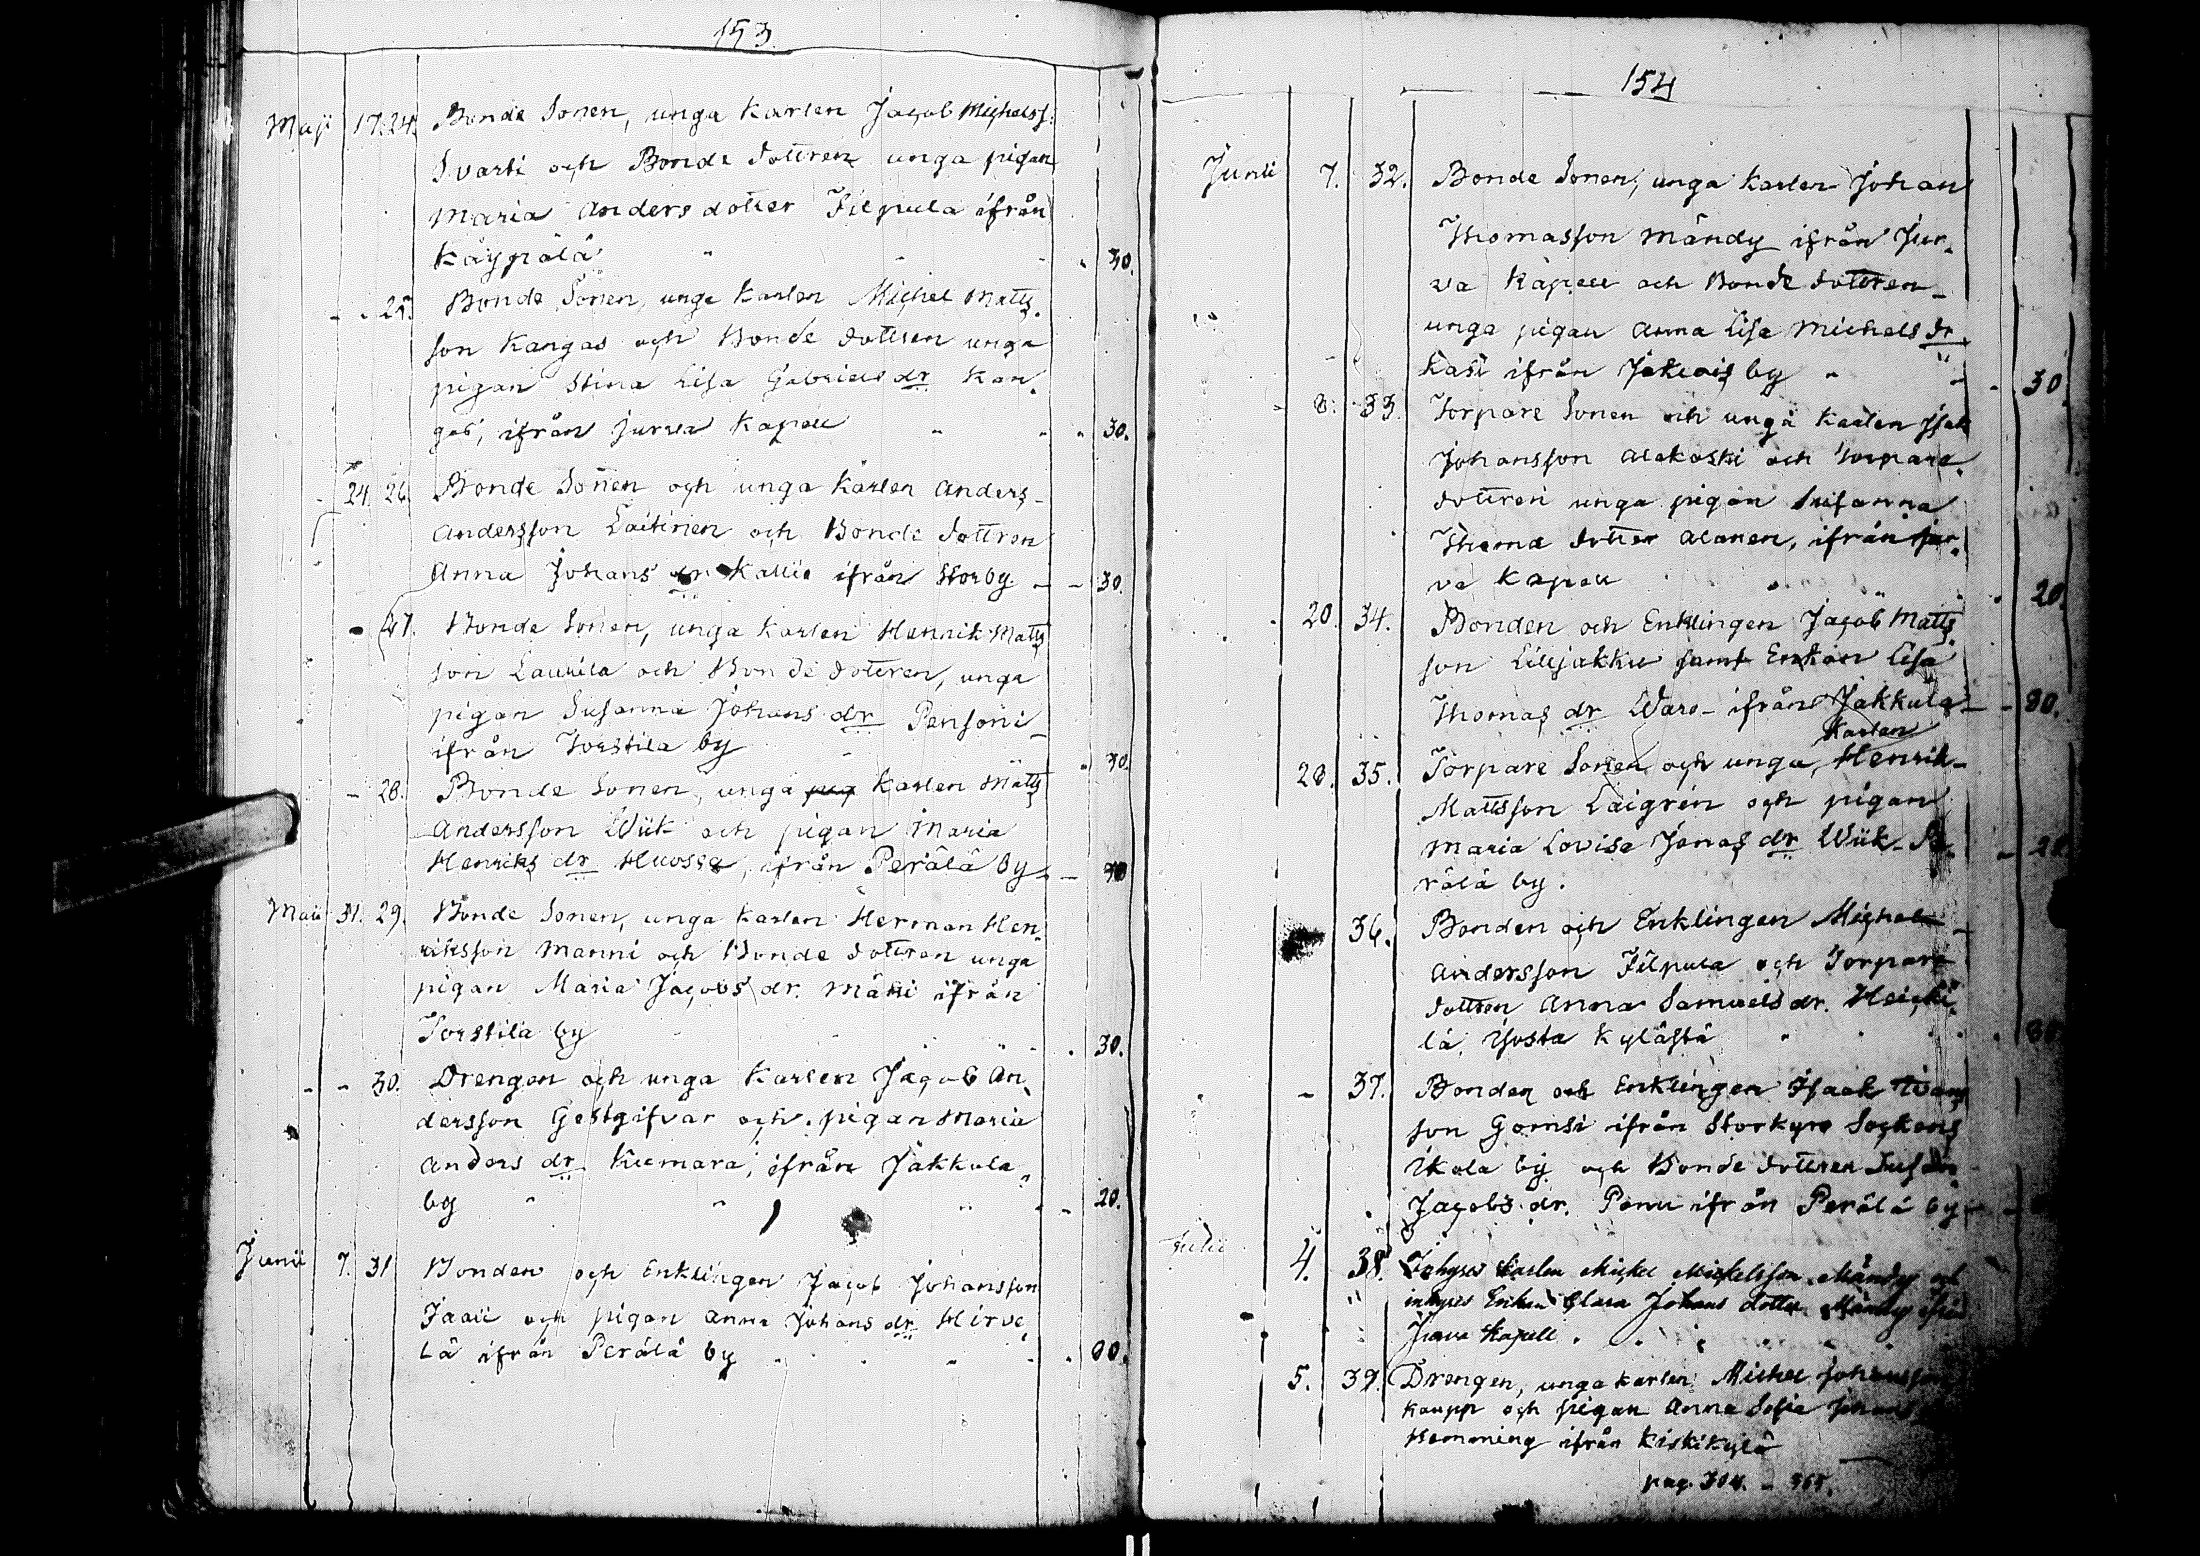 153.
Maji 17. 24. Bonde Sonen, unga Karlen Jacob Michelss:
Svarti och Bonde dottren unga pigan
Maria Anders dotter Filpula ifrån
Käypälä " - - " 30.
- - 25. Bonde Sonen, unga Karlen Michel Matts-
son Kangas och Bonde dottren unga
pigan Stina Lisa Gabriels dr Kan-
gas, ifrån Jurva Kapell " " " 30.
- 24. 26. Bonde Sonen och unga Karlen Anders-
Andersson Laitinen och Bonde dottren
Anna Johans dr Kallio ifrån Storby - - 30.
- 27. Bonde Sonen, unga Karlen Henrik Matts
son Laurila och Bonde dottren, unga
pigan Susanna Johans dr Pensoni-
ifrån Torstila by - " 30.
- 28. Bonde Sonen, unga Karlen Matts
Andersson Wiik och pigan Maria
Henriks dr Huossa, ifrån Perälä by - - 30
Maii 31. 29. Bonde Sonen, unga Karlen Herman Hen-
riksson Manni och Bonde dottren unga
pigan Maria Jacobs dr. Mänti ifrån
Torstila by " 30.
- - 30. Drengen och unga Karlen Jacob An-
dersson Gestgifvar och pigan Maria
Anders dr Kumara, ifrån Jakkula
by " " " - 20.
Junii 7. 31 Bonden och Enklingen Jacob Johansson
Jaari och pigan Anna Johans dr Hirve
lä ifrån Perälä by " " 80.
154
Junii 7. 32. Bonde Sonen, unga Karlen Johan
Thomasson Mändy ifrån Jur-
va Kapell och Bonde dottren-
unga pigan Anna Lisa Michels dr
Kasi ifrån Jokois by " - 30
- 8. 33. Torpare Sonen och unga Karlen Isak
Johansson Alakoski och Torpare-
dottren unga pigan Susanna
Thoma dotter Alanen, ifrån Jur-
va Kapell " " 20.
20. 34. Bonden och Enklingen Jacob Matts
son Lilljakku samt Enkan Lisa
Thomas dr Waro- ifrån Jakkula - - 80.
Karlen
28. 35. Torpare Sonen och unga, Henrik-
Mattsson Laigren och pigan
Maria Lovisa Jonas dr Wiik Pe-
rälä by.
36. Bonden och Enklingen Michel-
Andersson Filpula och Torpare
dottren Anna Samuels dr. Heicki-
lä, Yösta kylästä
- 37. Bonden och Enklingen Isaak
son Gomsi ifrån Storkyro Sockens
Ikola by och Bonde dottren
Jacobs dr. Penu ifrån Perälä by -
Julii 4. 38. Inhyses Karlen Michel Michelsson Mändy och
inhyses Enkan Clara Johans dotter Mändy ifrån
Jurva Kapell.
5. 39. Drengen, unga Karlen Michel Johansson
Kaupp och pigan Anna Sofia Johans
Hemming ifrån Kiskikylä
pag. 304. -